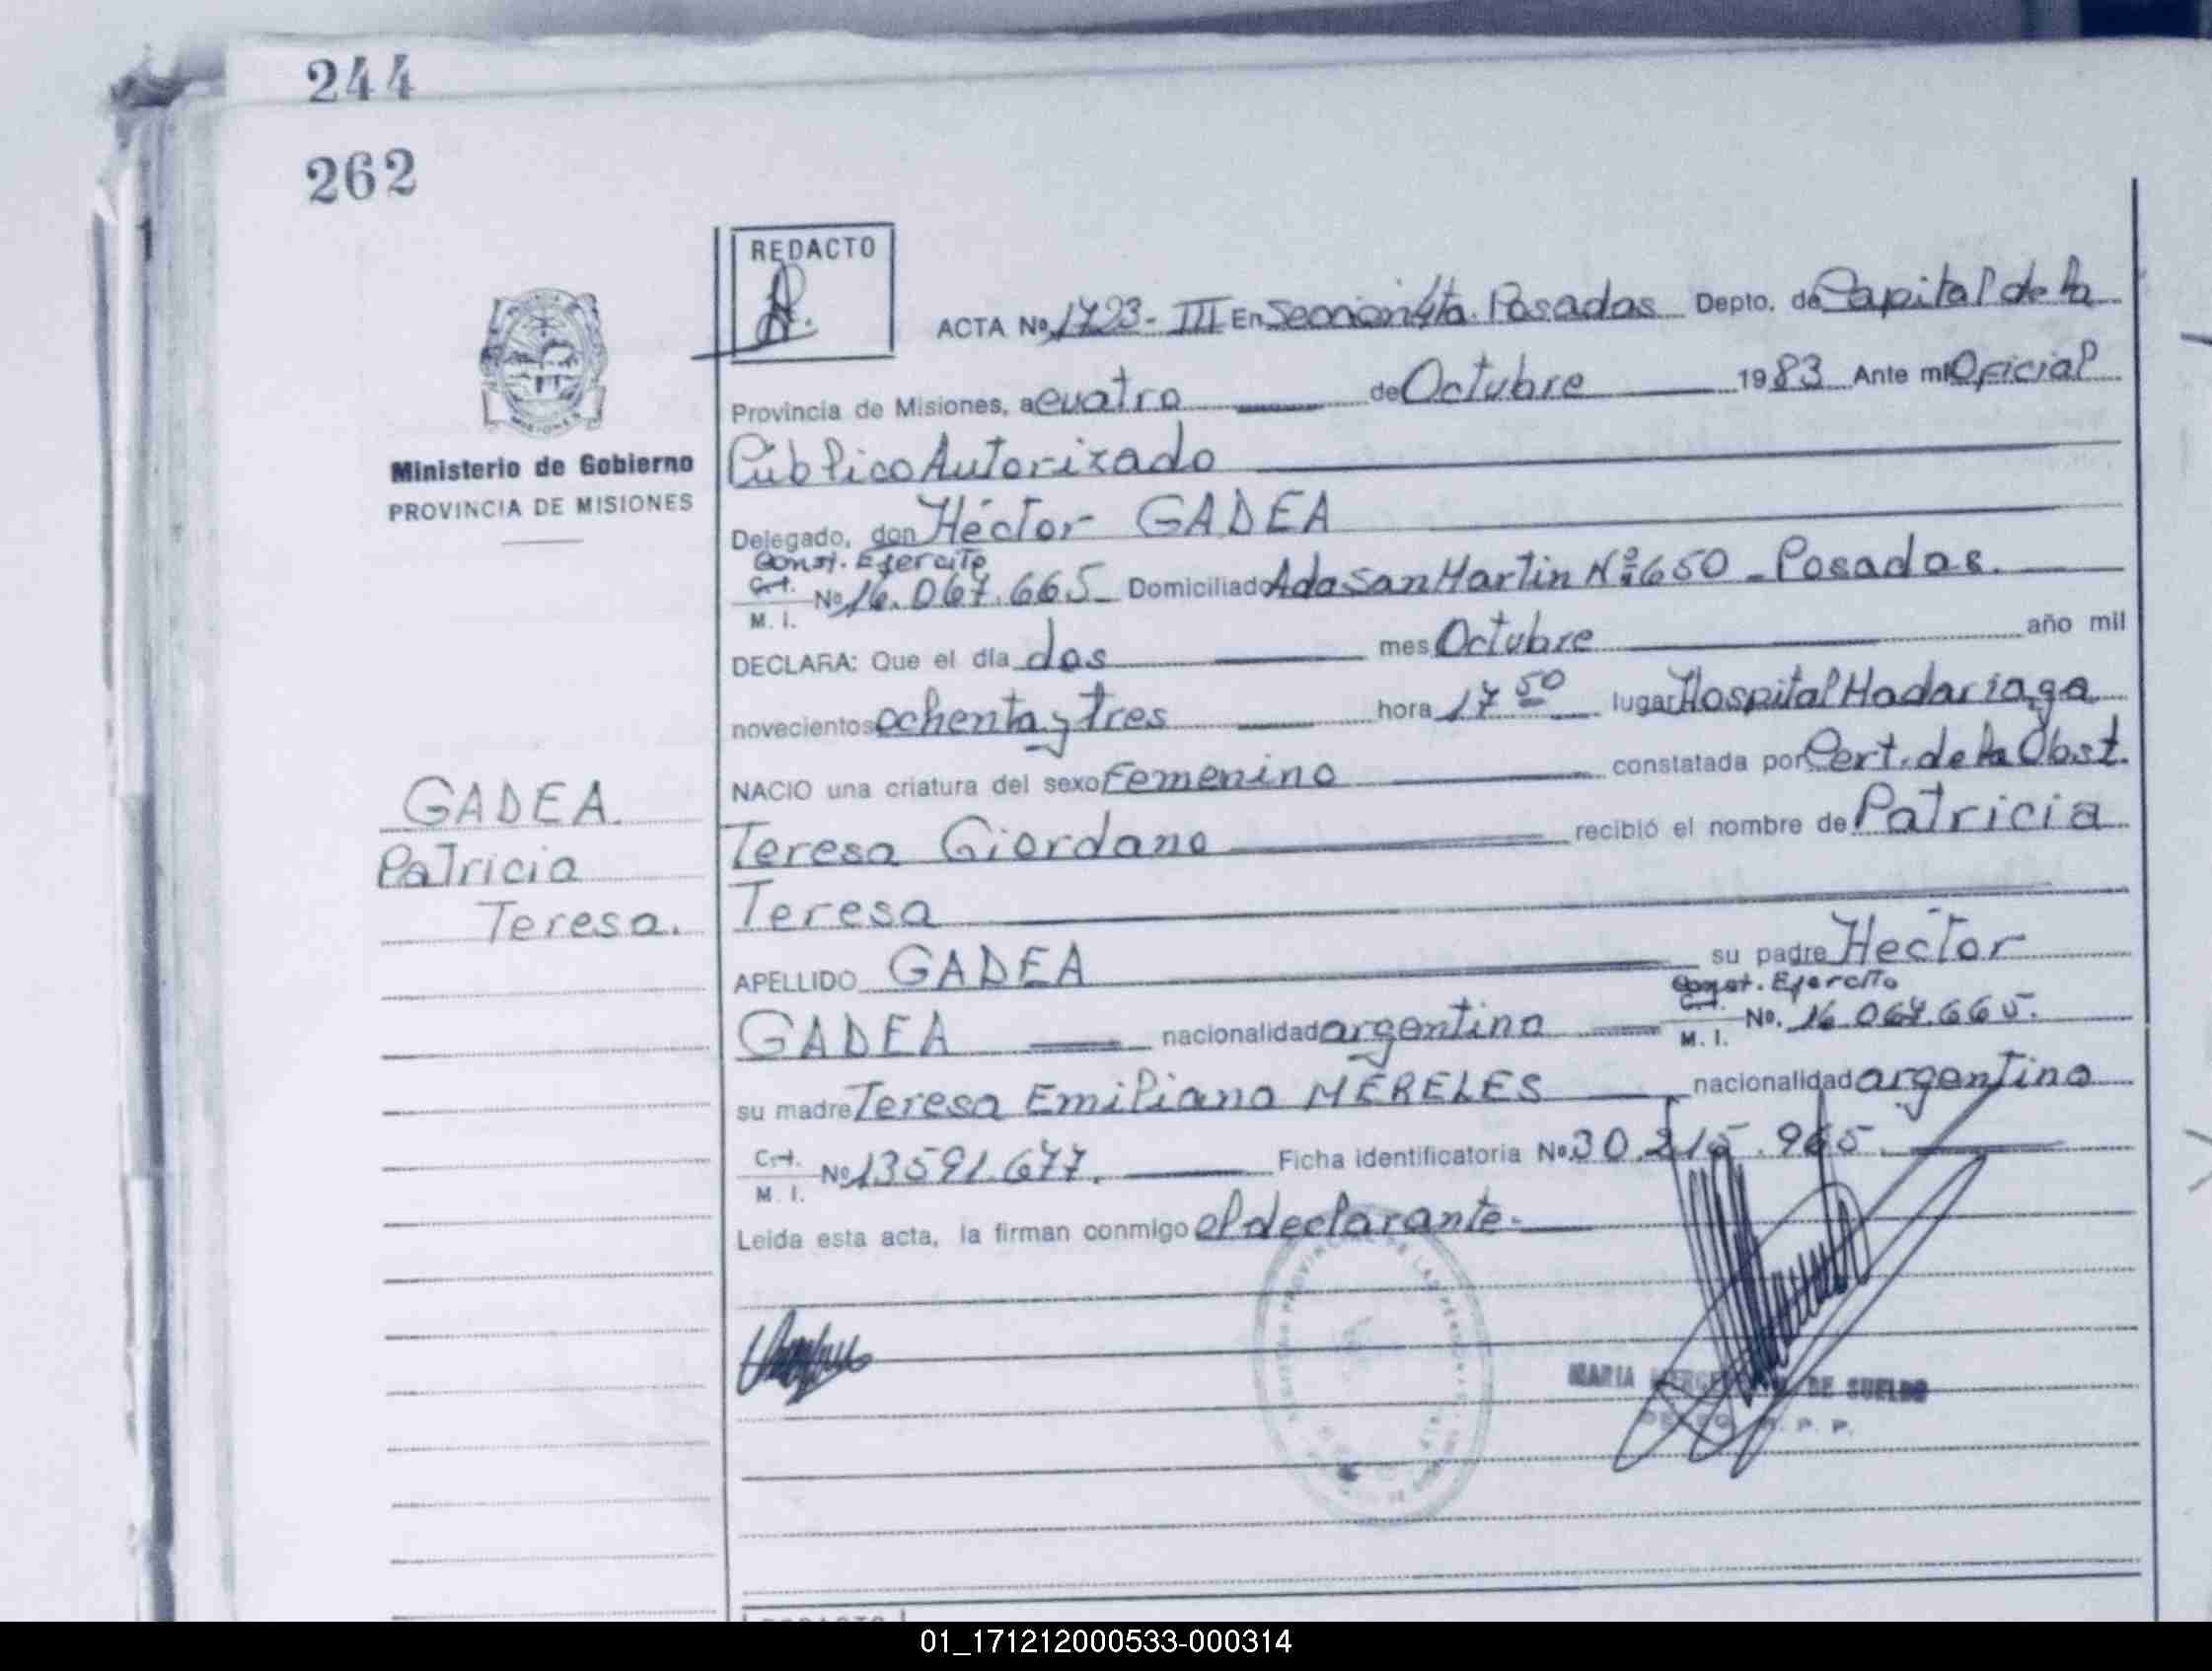 244
262
REDACTO
ACTA Nº 1723-III En Sección 4ta. Posadas Depto. de Capital de la
Provincia de Misiones, a cuatro de Octubre 1983 Ante mi Oficial
Público Autorizado
Ministerio de Gobierno
PROVINCIA DE MISIONES
Delegado, don Héctor GADEA
Const. Ejercito
C.I. Nº 16.067.665 Domiciliado Avda San Martin Nº 650 - Posadas.
M. I.
DECLARA: Que el día dos mes Octubre año mil
novecientos ochenta y tres hora 17 50 lugar Hospital Madariaga
NACIO una criatura del sexo Femenino constatada por Cert. de la Obst.
GADEA.
Patricia
Teresa.
Teresa Giordano recibió el nombre de Patricia
Teresa
APELLIDO GADEA su padre Hector
Const. Ejercito
GADEA nacionalidad argentina C.I. No. 16.067.665.
M. I.
su madre Teresa Emiliana MERELES nacionalidad argentina
C.I. Nº 13591.677. Ficha identificatoria Nº 30.215.965.
M. I.
Leída esta acta, la firman conmigo el declarante.
MARIA DE SUELDO
R. P. P.
01_171212000533-000314